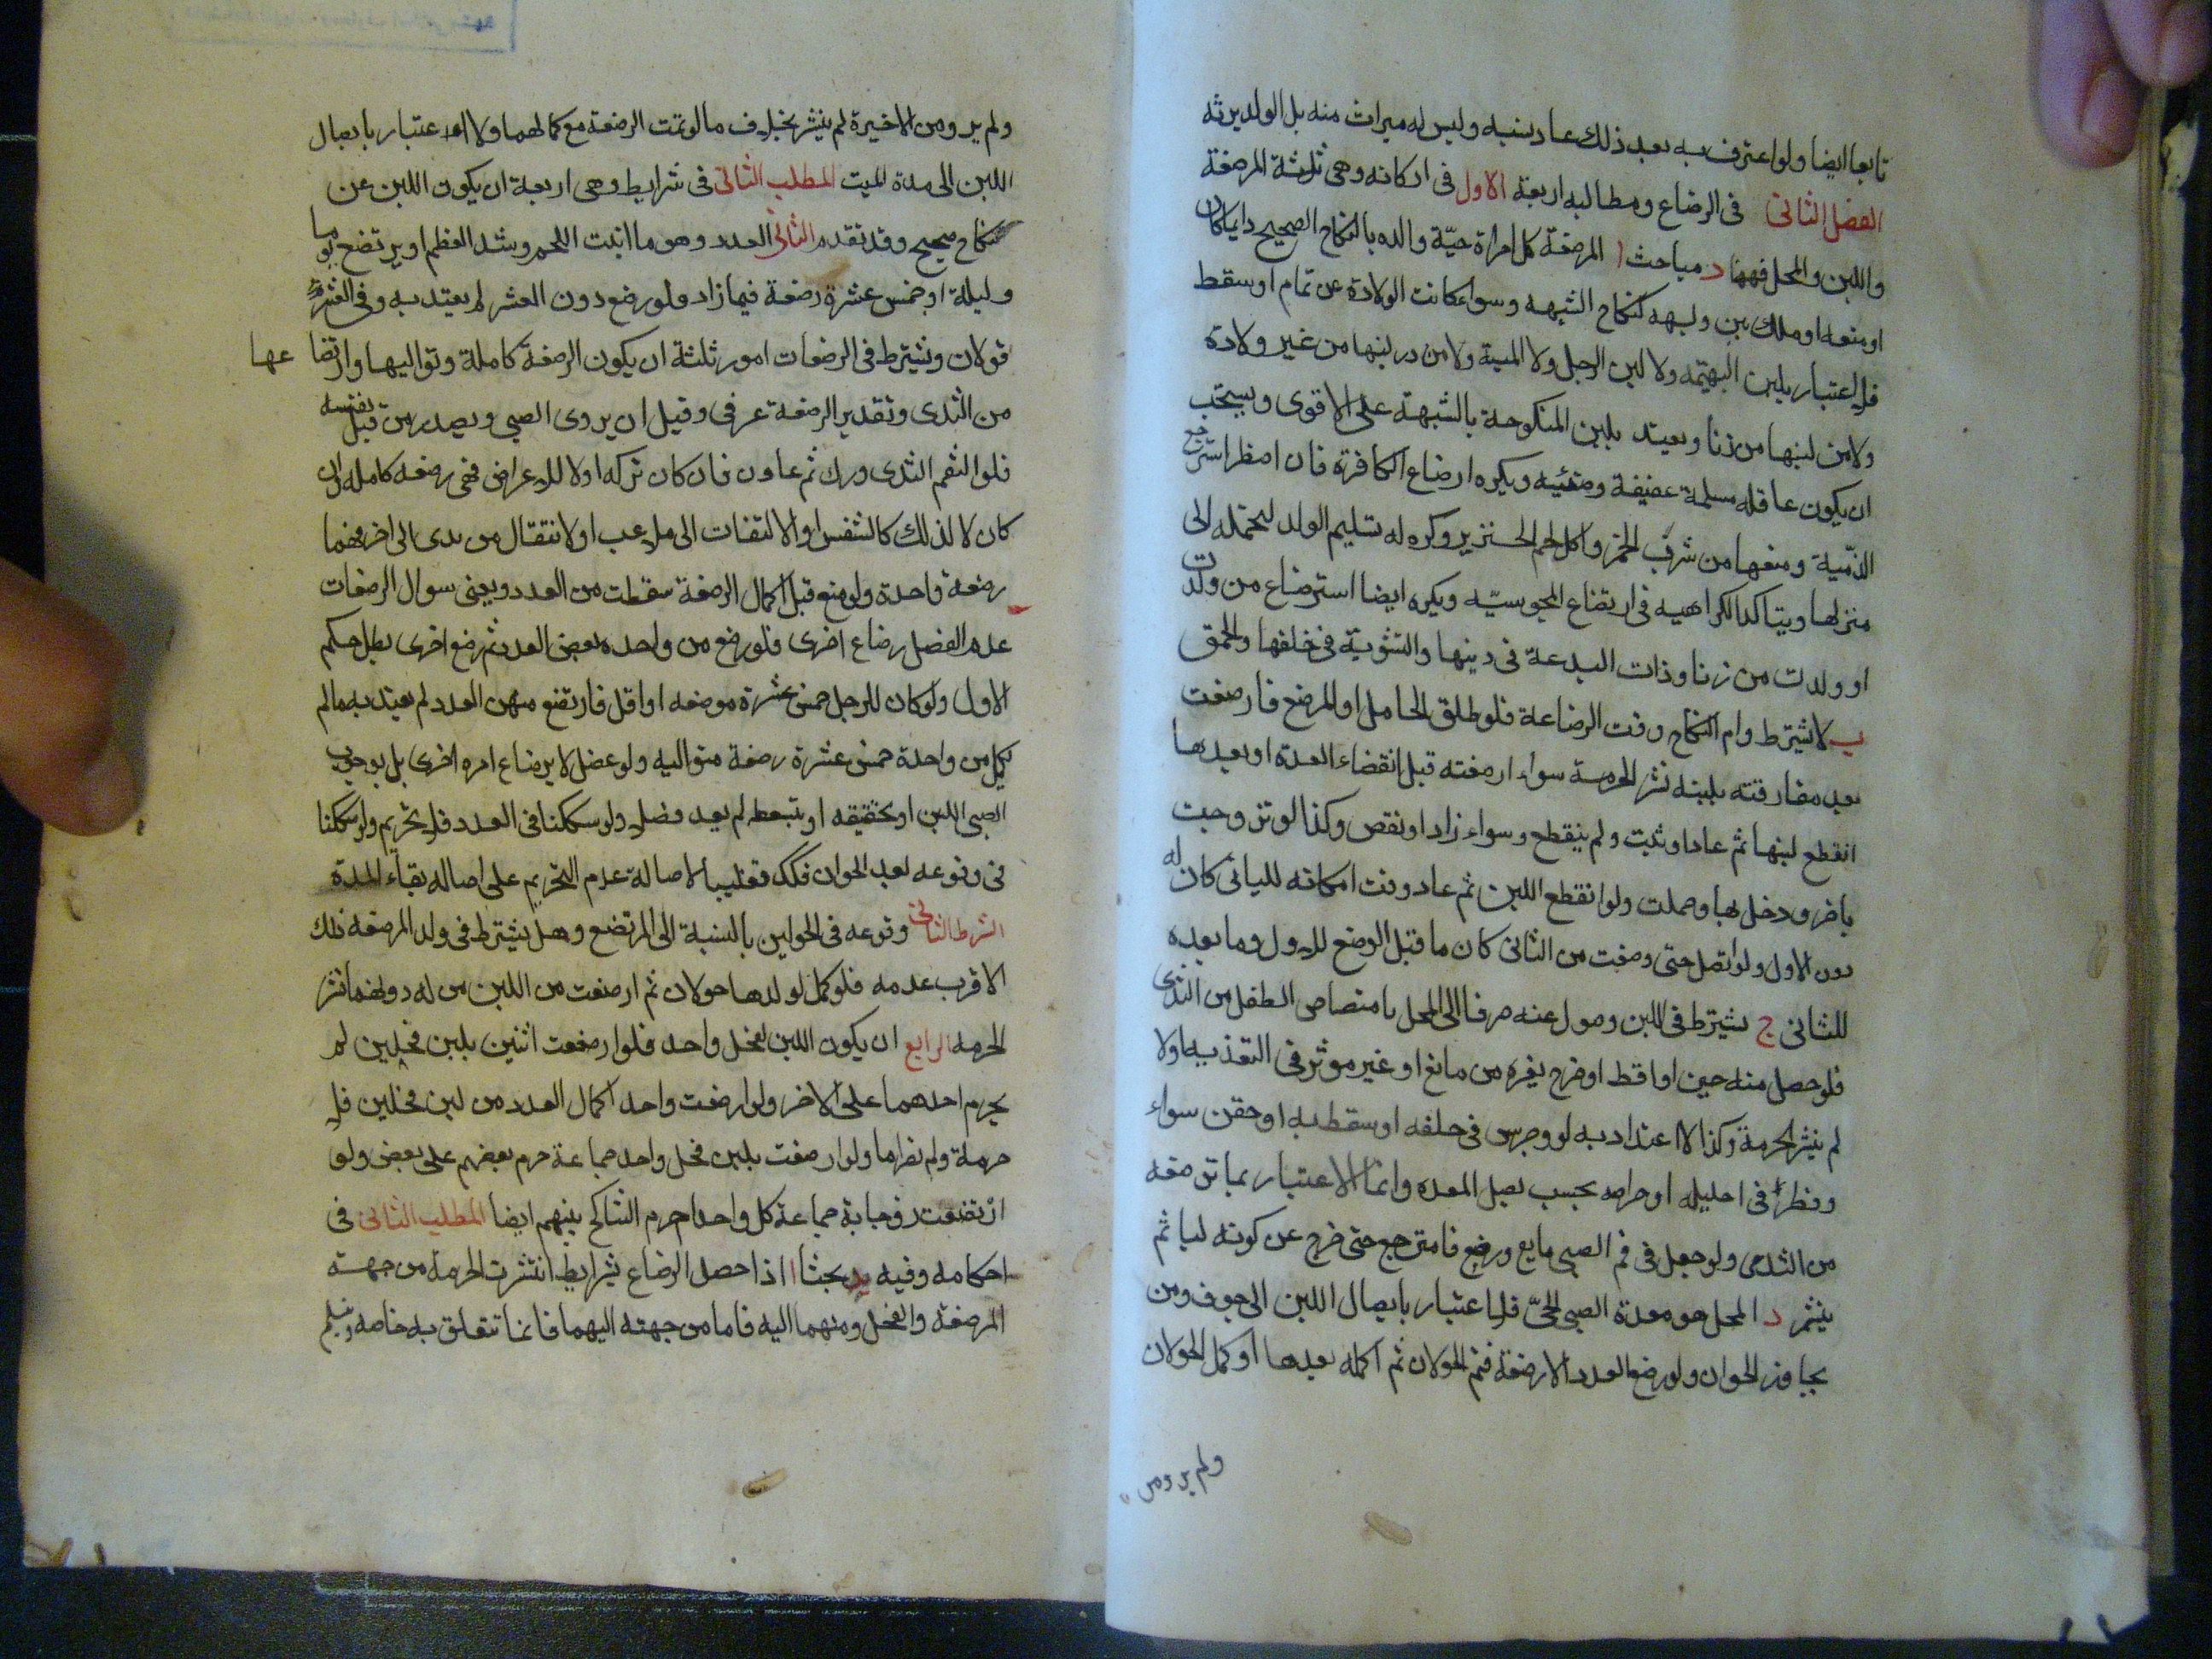 تابعا ايضا ولو اعترف به بعد ذلك عاد نسبه وليس له ميراث منه بل الولد يرثه
الفصل الثاني في الرضاع ومطالبه اربعة الاول في اركانه وهي ثلثة المرضعة
واللبن والمحل فههنا د مباحث ا المرضعة كل امراة حية والده بالنكاح الصحيح دايما كان
او متعه او ملك يمين ولبهه كنكاح الشبهه وسواء كانت الولادة عن تمام او سقط
فلا اعتبار بلبن البهيمه ولا لبن الرجل ولا الميتة ولا من در لبنها من غير ولادة
ولا من لبنها من زنا ويعتد بلبن المنكوحة بالشبهة على الاقوى ويستحب
ان يكون عاقله مسلمة عفيفة وضئيه ويكره ارضاع الكافرة فان اضطر استرضع
الذمية ومنعها من شرب الخمر واكل لحم الخنزير وكره له تسليم الولد لتحمله الى
منزلها ويتاكد الكراهيه في ارتضاع المجوسيه ويكره ايضا استرضاع من ولدت
او ولدت من زنا وذات البدعة في دينها والتشويه في خلقها والحمق
ب لا يشترط دوام النكاح وقت الرضاعة فلو طلق الحامل او المرضع فارضعت
بعد مفارقته بلبنه نشر الحرمة سواء ارضعته قبل انقضاء العدة او بعدها
انقطع لبنها ثم عاد او ثبت ولم ينقطع وسواء زاد او نقص وكذا لو تزوجت
باخر ودخل بها وحملت ولو انقطع اللبن ثم عاد وقت امكانه للثاني كان له
دون الاول ولو اتصل حتى وضعت من الثاني كان ما قبل الوضع للاول وما بعده
للثاني ج يشترط في اللبن وصول عنه صرفا الى المحل بامتصاص الطفل من الثدي
فلو حصل منه جبن او اقط او مزج بغيره من مانع او غير موثر في التغذيه او لا
لم ينشر الحرمة وكذا لا اعتداد به لو وجر في حلقه او سقط به او حقن سواء
وقطر في احليله او جراحه بحيث يصل المعده وانما الاعتبار بما ترضعه
من الثدي ولو جعل في فم الصبي مايع ورضع فامتزج حتى خرج عن كونه لبنا ثم
ينشر د المحل هو معدة الصبي الحي فلا اعتبار بايصال اللبن الى جوف ومن
تجاوز الحولان ولو رضع العدد الا رضعة فتم الحولان ثم اكمله بعدها او كمل الحولان
ولم يرو من
ولم يرو من الاخيرة لم ينشر بخلاف ما لو تمت الرضعة مع كمالهما ولا اعتبار بايصال
اللبن الى معدة الميت المطلب الثاني في شرايط وهي اربعة ان يكون اللبن عن
نكاح صحيح وقد تقدم الثاني العدد وهو ما انبت اللحم وشد العظم او يرتضع يوما
وليلة او خمس عشرة رضعة فيما زاد ولو رضع دون العشر لم يعتد به وفي العشر
قولان ويشترط في الرضعات امور ثلثة ان يكون الرضعة كاملة وتواليها وارتضا عها
من الثدى وتقدير الرضعة عرفي وقيل ان يروى الصبي ويصدر من قبل نفسه
فلو التقم الثدى وترك ثم عاود فان كان تركه اولا للاعراض فهي رضعه كامله وان
كان لا لذلك كالتنفس والالتفات الى ملاعب او لانتقال من ثدى الى اخر فهما
رضعة واحدة ولو منع قبل اكمال الرضعة سقطت من العدد ويعنى بتوال الرضعات
عدم الفصل برضاع اخرى فلو رضع من واحده بعض العدد ثم رضع اخرى بطل حكم
الاول ولو كان للرجل خمس عشرة مرضعه او اقل فارتضع منهن العدد لم يعتد به مالم
يكمل من واحدة خمس عشرة رضعة متواليه ولو فصل لا برضاع امره اخرى بل بوجور
الصبي اللبن او بحقنه او بتسعط لم يعد فصلا ولو شككنا في العدد فلا تحريم ولو شككنا
في وقوعه بعد الحولان فكك تغليبا لاصالة عدم التحريم على اصاله بقاء المدة
الشرط الثالث وقوعه في الحولين بالنسبة الى المرتضع وهل يشترط في ولد المرضعه ذلك
الاقرب عدمه فلو كمل لولدها حولان ثم ارضعت من اللبن من له دونهما نشر
الحرمه الرابع ان يكون اللبن لفحل واحد فلو ارضعت اثنين بلبن فحلين لم
يحرم احدهما على الاخر ولو ارضعت واحد اكمال العدد من لبن فحلين فلا
حرمة ولو ارضعت بلبن فحل واحد جماعة حرم بعضهم على بعض ولو
ارتضعت زوجاته جماعة كل واحدا حرم التناكح بينهم ايضا المطلب الثاني في
احكامه وفيه يد بحثا ا اذا حصل الرضاع بشرايط انتشرت الحرمة من جهة
المرضعة والفحل ومنهما اليه فاما من جهته اليهما فانما تتعلق به خاصه